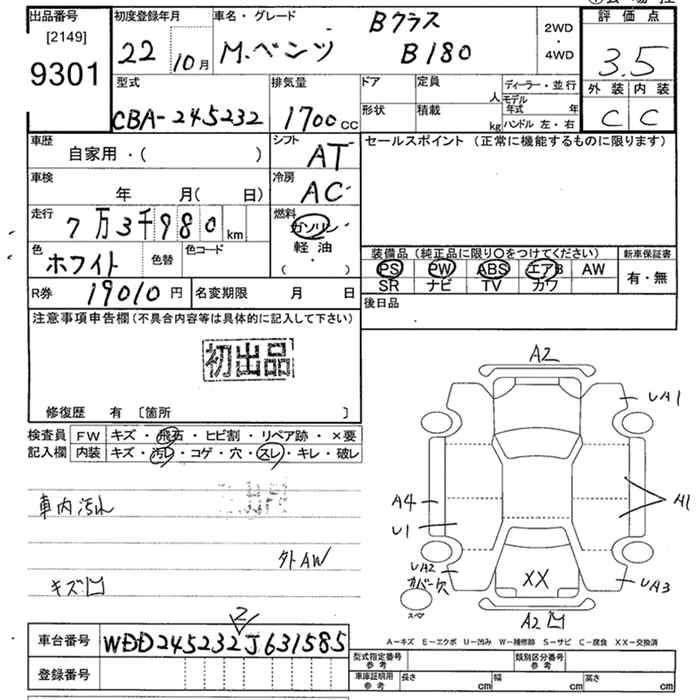 出品番号
[2149]
9301
初度登録年月
22 10月
車名・グレード
M.ベンツ
Bクラス
B180
2WD
・
4WD
評価点
3.5
外装 内装
C C
型式
CBA-245232
排気量
1700cc
ドア
形状
定員
人
積載
kg
ディーラー・並行
モデル年式 年
ハンドル 左・右
車歴
自家用・( )
シフト
AT
セールスポイント (正常に機能するものに限ります)
車検
年 月( 日)
冷房
AC
走行
7万3千980km
燃料
ガソリン
軽油
( ・ )
色
ホワイト
色替
色コード
装備品 (純正品に限り〇をつけてください)
新車保証書
PS PW ABS エアB AW
SR ナビ TV カワ
有・無
R券
19010円
名変期限 月 日
後日品
注意事項申告欄(不具合内容等は具体的に記入して下さい)
初出品
修復歴 有 [箇所 ]
検査員
記入欄
FW キズ・飛石・ヒビ割・リペア跡・×要
内装 キズ・汚レ・コゲ・穴・スレ・キレ・破レ
車内汚れ
外AW
キズ凹
A2
UA1
A4
A1
U1
UA2
カバー欠
XX
UA3
スペア
A2凹
A-キズ E-エクボ U-凹み W-補修跡 S-サビ C-腐食 XX-交換済
車台番号
WDD245232J631585
2
登録番号
型式指定番号
参考
類別区分番号
参考
車庫証明用
参考
長さ cm
幅 cm
高さ cm